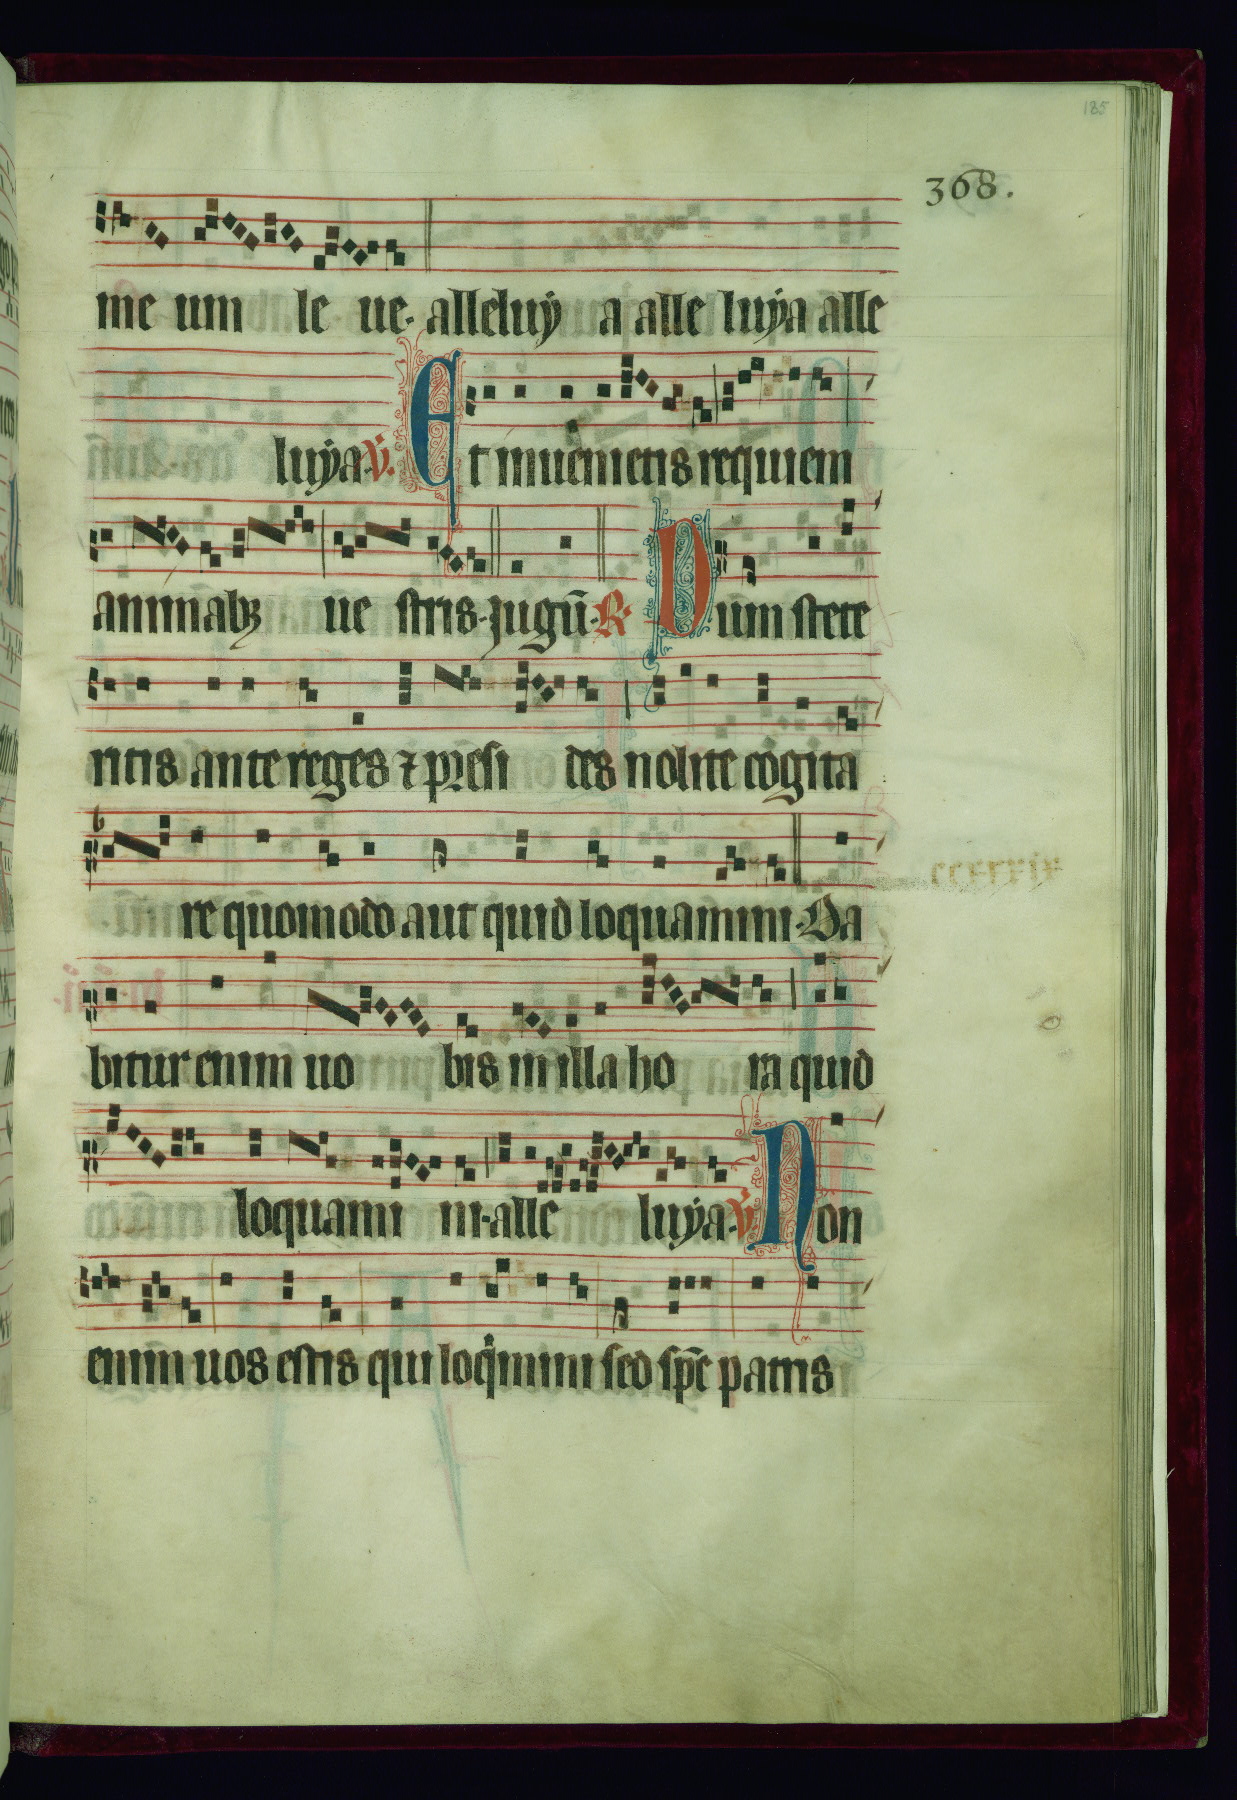 185
368.
me um le ue. alleluÿ a alle luÿa alle
luÿa. V̄. Et inuenietis requiem
animabꝫ ue stris. Jugū. R̄. Dum stete
ritis ante reges ⁊ presi des nolite cogita
re quomodo aut quid loquamini. Da
bitur enim uo bis in illa ho ra quid
loquami ni. alle luÿa. V̄. Non
enim uos estis qui loqͥmini sed sp̄c patris